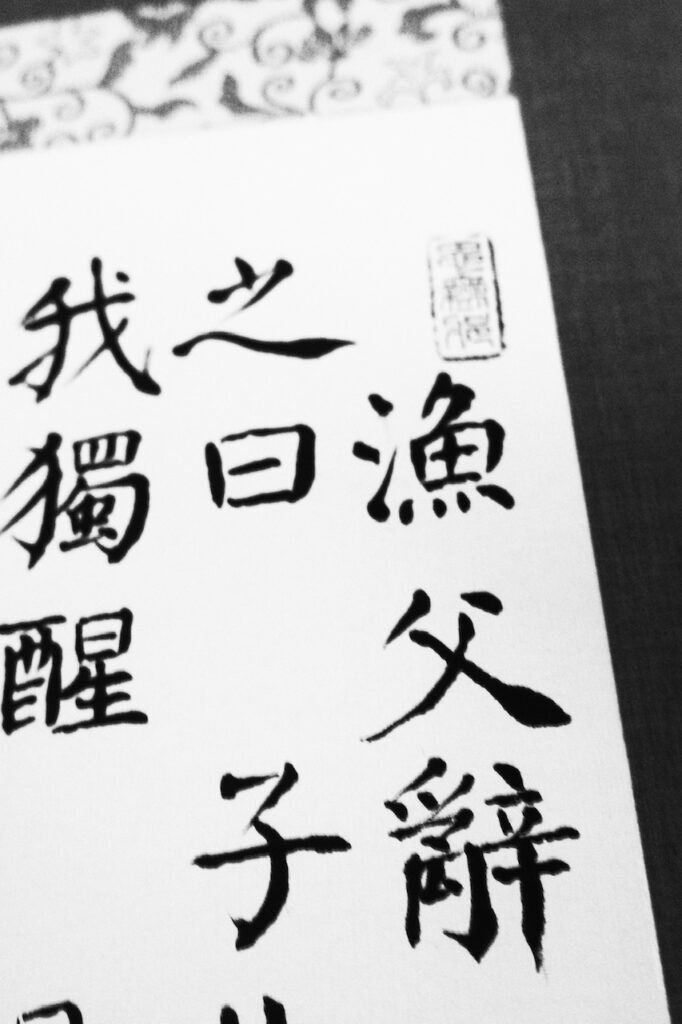 漁父辭
之曰 子
我獨醒